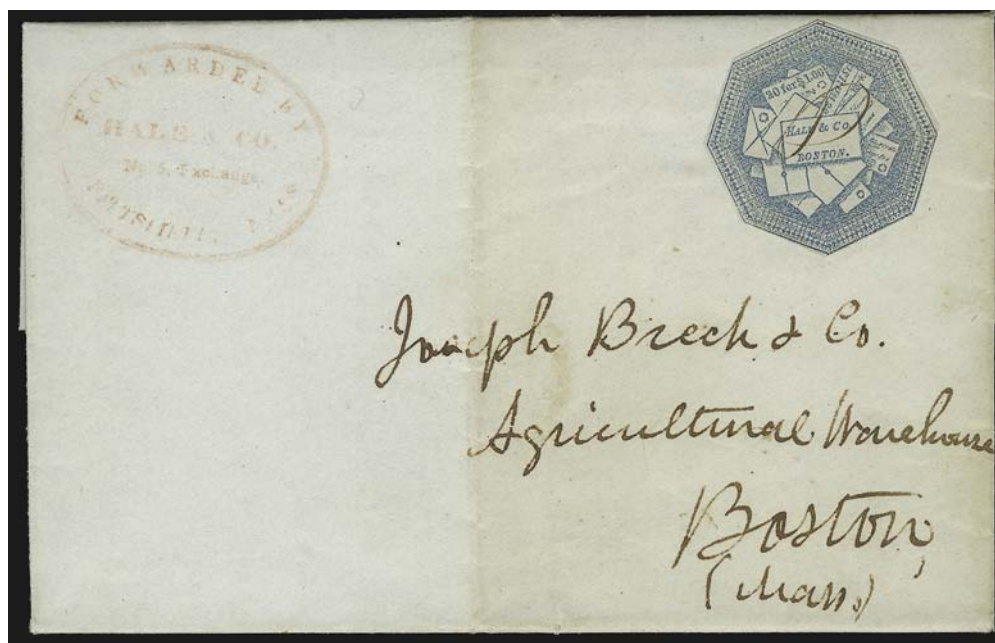 FORWARDED BY
HALE & CO.
No. 5, Exchange,
20 for $1.00
HALE & Co.
BOSTON.
Joseph Breck & Co.
Agricultural Warehouse
Boston,
(Mass.)